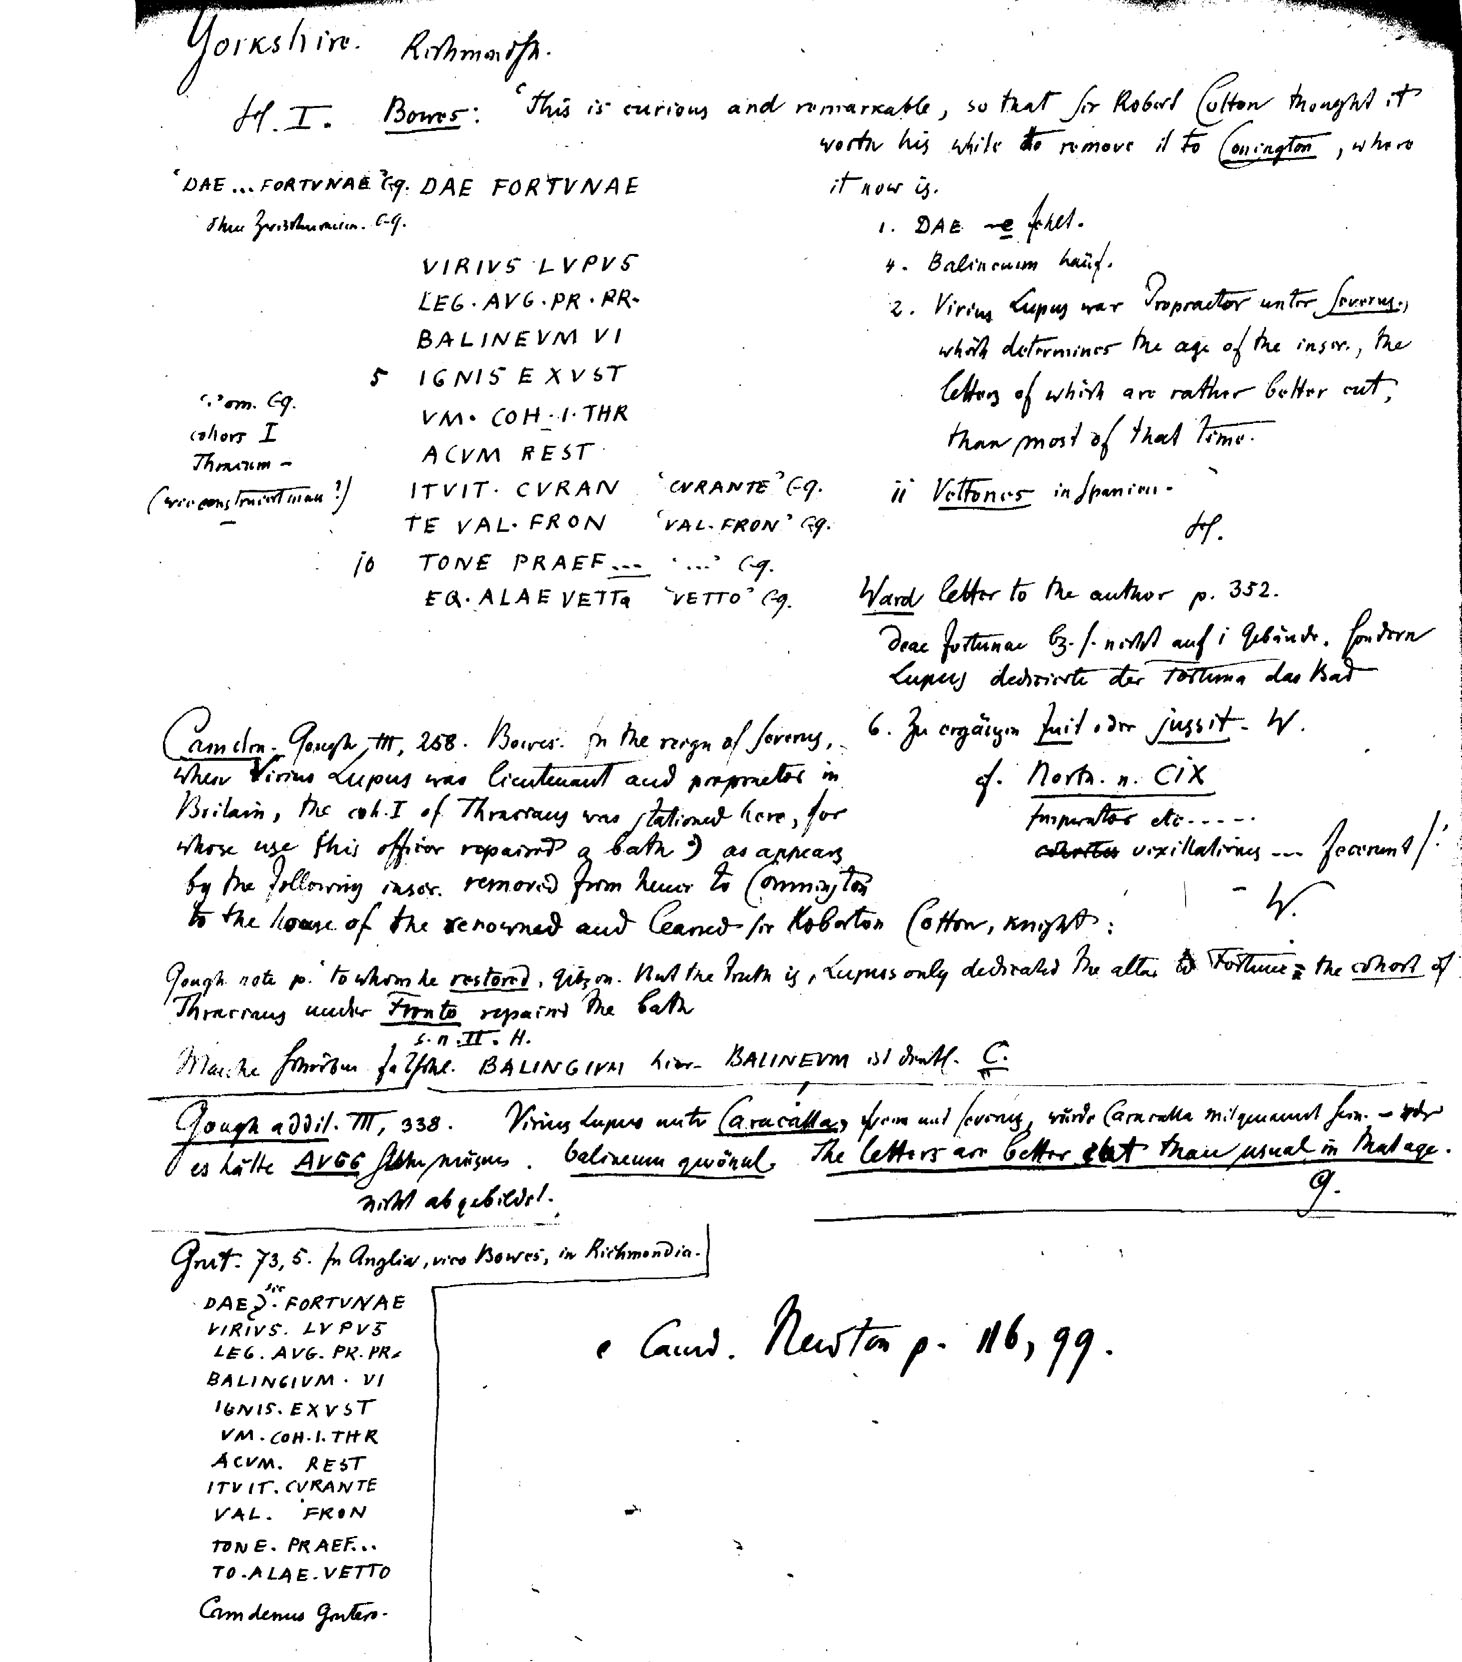 Yorkshire. Richmondsh.
H. I. Bowes: 'This is curious and remarkable, so that Sir Robert Cotton thought it
worth his while to remove it to Conington, where
it now is.
'DAE ... FORTVNAE' Cg. DAE FORTVNAE
ohne Cg.
VIRIVS LVPVS
LEG. AVG. PR. PR.
BALINEVM VI
5 IGNIS EXVST
VM. COH. I. THR
ACVM REST
ITVIT. CVRAN 'CVRANTE' Cg.
TE VAL. FRON 'VAL. FRON' Cg.
10 TONE PRAEF... '...' Cg.
EQ. ALAE VETTO 'VETTO' Cg.
'.' om. Cg.
cohors I
Thracum -
(wie construiert man?)
1. DAE -e fehlt.
4. Balineum häuf.
2. Virius Lupus war Propraetor unter Severus,
which determines the age of the inscr., the
letters of which are rather better cut,
than most of that time.
11 Vettones in Spanien.
H.
Ward letter to the author p. 352.
Deae Fortunae bz. s. nicht auf 1 Gebäude, sondern
Lupus dedicierte der Fortuna das Bad
6. Zu ergänzen fuit oder jussit - W.
cf. North. n. CIX
Imperator etc.....
vexillationes ... fecerunt
W.
Camden. Gough III, 258. Bowes. In the reign of Severus,
when Virius Lupus was lieutenant and propraetor in
Britain, the coh. I of Thracians was stationed here, for
whose use this officer repaired a bath p) as appears
by the following inscr. removed from hence to Connington
to the house of the renowned and learned Sir Roberton Cotton, knight:
Gough note p. 'to whom he restored, Gibson. But the truth is, Lupus only dedicated the altar to Fortune: the cohort of
Thracians under Fronto repaired the bath
s. n. II. H.
Manche schreiben BALINGIVM hier BALINEVM ist deutl. C.
Gough addit. III, 338. Virius Lupus unter Caracalla, denn unt Severus, würde Caracalla mitgenannt sein. - oder
es hätte AVGG stehn müssen. balineum gewöhnl. The letters are better cut than usual in that age.
nicht abgebildet. G.
Grut. 73, 5. In Anglia, vico Bowes, in Richmondia.
sic
DAE. FORTVNAE
VIRIVS. LVPVS
LEG. AVG. PR. PR.
BALINGIVM. VI
IGNIS. EXVST
VM. COH. I. THR
ACVM. REST
ITVIT. CVRANTE
VAL. FRON
TONE. PRAEF...
TO. ALAE. VETTO
Camdenus Grutero.
e Camd. Newton p. 116, 99.